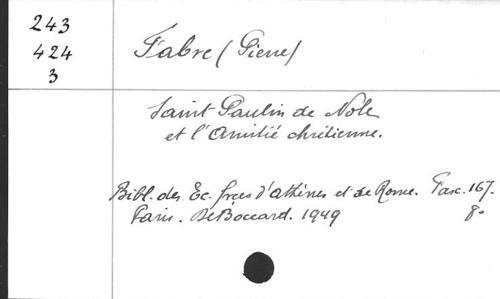 243
424
3
Fabre (Pierre)
Saint Paulin de Nole
et l'Amitié chrétienne.
Bibl. des Ec. frçes d'Athènes et de Rome. Fasc. 167.
Paris. De Boccard. 1949 8°